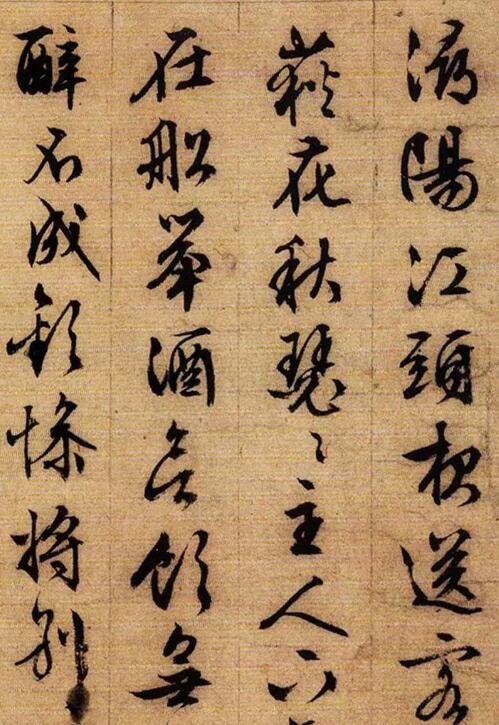 潯陽江頭夜送客
荻花秋瑟〻主人下
在船舉酒欲飲無
醉不成歡慘將別